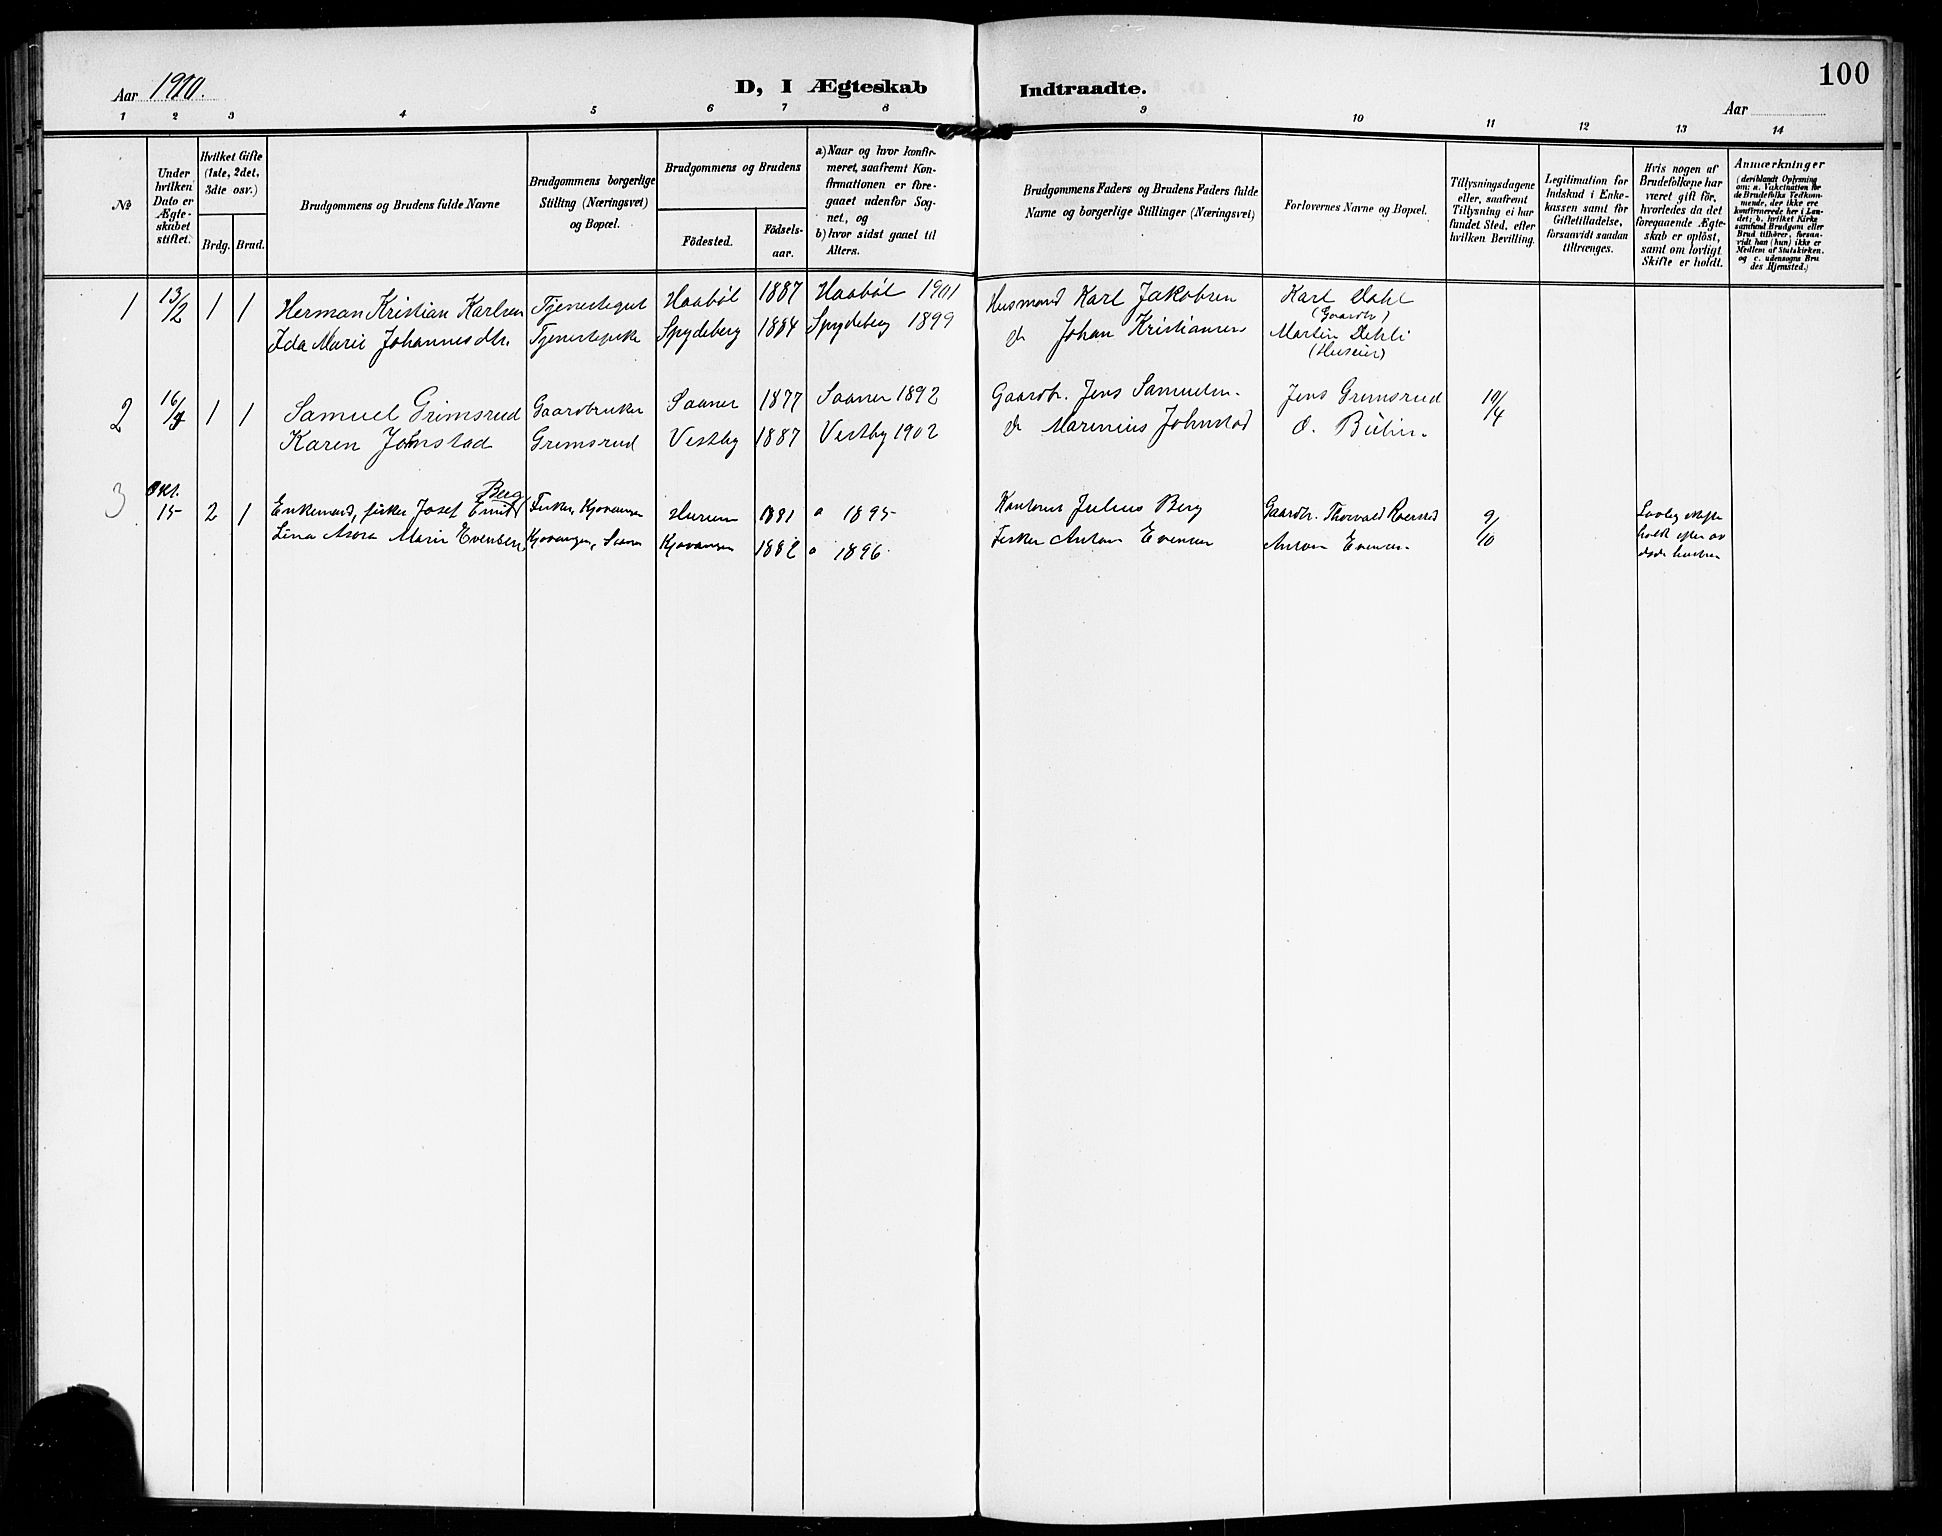 Aar 1910.
D, I Ægteskab Indtraadte.
100
Aar
1 2 3 4 5 6 7 8 9 10 11 12 13 14
No
Under
hvilken
Dato er
Ægte-
skabet
stiftet.
Hvilket Gifte
(1ste, 2det,
3die osv.)
Brdg. Brud.
Brudgommens og Brudens fulde Navne
Brudgommens borgerlige
Stilling (Næringsvei)
og Bopæl.
Brudgommens og Brudens
Födested.
Födsels-
aar.
a) Naar og hvor konfir-
meret, saafremt Kon-
firmationen er fore-
gaaet udenfor Sog-
net, og
b) hvor sidst gaaet til
Alters.
Brudgommens Faders og Brudens Faders fulde
Navne og borgerlige Stillinger (Næringsvei)
Forlovernes Navne og Bopæl.
Tillysningsdagene
eller, saafremt
Tillysning ei har
fundet Sted, efter
hvilken Bevilling.
Legitimation for
Indskud i Enke-
kassen samt for
Giftetilladelse,
forsaavidt saadan
tiltrænges.
Hvis nogen af
Brudefolkene har
været gift för,
hvorledes da det
foregaaende Ægte-
skab er oplöst,
samt om lovligt
Skifte er holdt.
Anmærkninger
(deriblandt Oplysning
om: a. Vakcination for
de Brudefolks Vedkom-
mende, der ikke ere
konfirmerede her i Lan-
det; b. hvilket Kirke-
samfund Brudgom eller
Brud tilhörer, forsaa-
vidt han (hun) ikke er
Medlem af Statskirken,
og c. udensogns Bru-
des Hjemsted.)
1 13/2 1 1 Herman Kristian Karlsen Tjenestegut Haaböl 1887 Haaböl 1901 Husmand Karl Jakobsen Karl Dahl
(Gaardbr)
Ida Marie Johannesdtr. Tjenestepike Spydeberg 1884 Spydeberg 1899 do Johan Kristiansen Martin Dehli
(Huseier)
2 16/4 1 1 Samuel Grimsrud Gaardbruker Saaner 1877 Saaner 1892 Gaardbr. Jens Samuelsen. Jens Grimsrud 10/4
Karen Johnstad Grimsrud Vestby 1887 Vestby 1902 do Marinius Johnstad O.
3 Okt. 15 2 1 Enkemand, fisker Josef Emil Berg Fisker, Kjøvangen Hurum 1881 a 1895 Julius Berg Gaardbr. Thorvald 9/10 Lovlig skifte
Lina Marie Evensen, Kjøvangen, Saaner Kjøvangen 1882 a 1896 Fisker Anton Evensen Anton Evensen holdt efter av
døde hustru